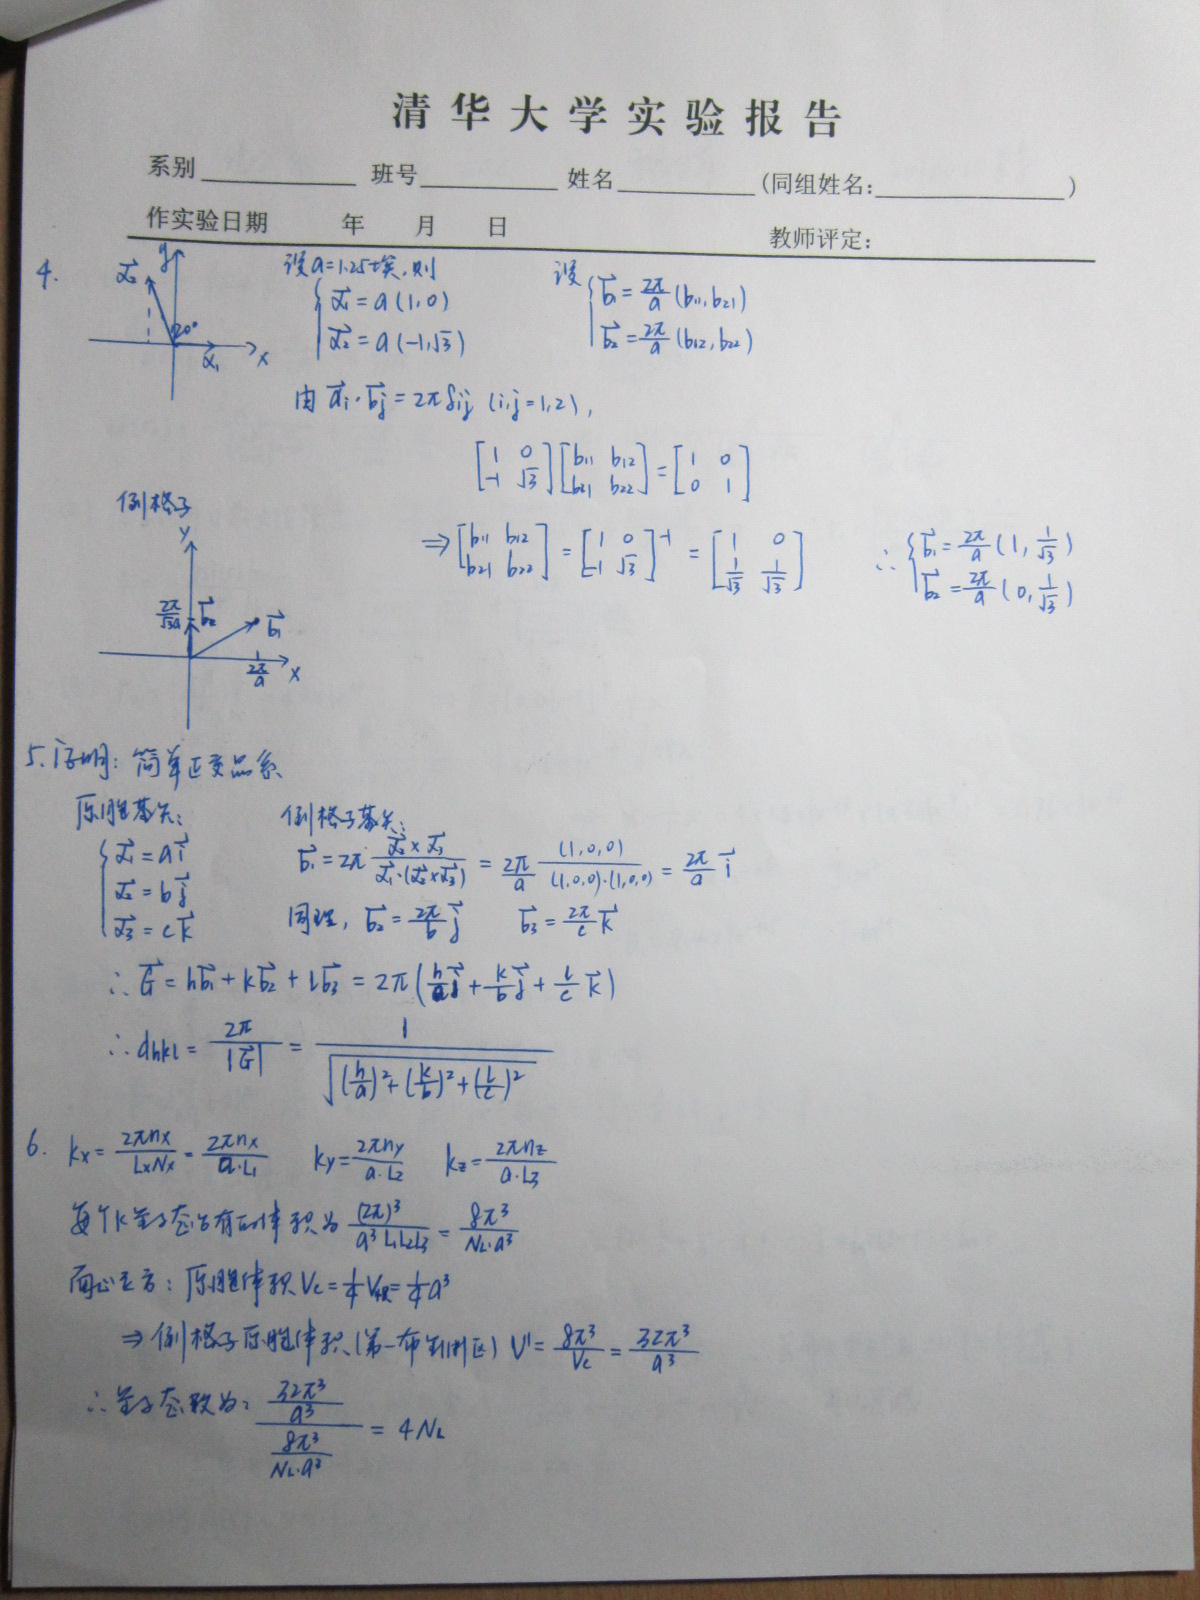 清华大学实验报告
系别 班号 姓名 (同组姓名: )
作实验日期 年 月 日 教师评定:
4.
y
a⃗₂
120°
a⃗₁ x
设a=1.25埃,则
{ a⃗₁ = a(1,0)
a⃗₂ = a(-1,√3)
设 { b⃗₁ = 2π/a (b₁₁, b₂₁)
b⃗₂ = 2π/a (b₁₂, b₂₂)
由 a⃗ᵢ·b⃗ⱼ = 2πδᵢⱼ (i,j=1,2),
[1 0; -1 √3][b₁₁ b₁₂; b₂₁ b₂₂] = [1 0; 0 1]
⇒ [b₁₁ b₁₂; b₂₁ b₂₂] = [1 0; -1 √3]⁻¹ = [1 0; 1/√3 1/√3]
∴ { b⃗₁ = 2π/a (1, 1/√3)
b⃗₂ = 2π/a (0, 1/√3)
倒格子
y
2π/√3a b⃗₂
b⃗₁
2π/a x
5. 证明: 简单正交晶系
原胞基矢:
{ a⃗₁ = a i⃗
a⃗₂ = b j⃗
a⃗₃ = c k⃗
倒格子基矢:
b⃗₁ = 2π (a⃗₂×a⃗₃)/(a⃗₁·(a⃗₂×a⃗₃)) = 2π/a (1,0,0)/((1,0,0)·(1,0,0)) = 2π/a i⃗
同理, b⃗₂ = 2π/b j⃗ b⃗₃ = 2π/c k⃗
∴ G⃗ = hb⃗₁ + kb⃗₂ + lb⃗₃ = 2π(h/a i⃗ + k/b j⃗ + l/c k⃗)
∴ dhkl = 2π/|G⃗| = 1/√((h/a)²+(k/b)²+(l/c)²)
6. kx = 2πnx/LxNx = 2πnx/a·L₁ ky = 2πny/a·L₂ kz = 2πnz/a·L₃
每个k量子态占有的体积为 (2π)³/a³L₁L₂L₃ = 8π³/NL·a³
面心立方: 原胞体积 Vc = 1/4 V = 1/4 a³
⇒ 倒格子原胞体积(第一布里渊区) V' = 8π³/Vc = 32π³/a³
∴ 量子态数为: (32π³/a³)/(8π³/NL·a³) = 4NL